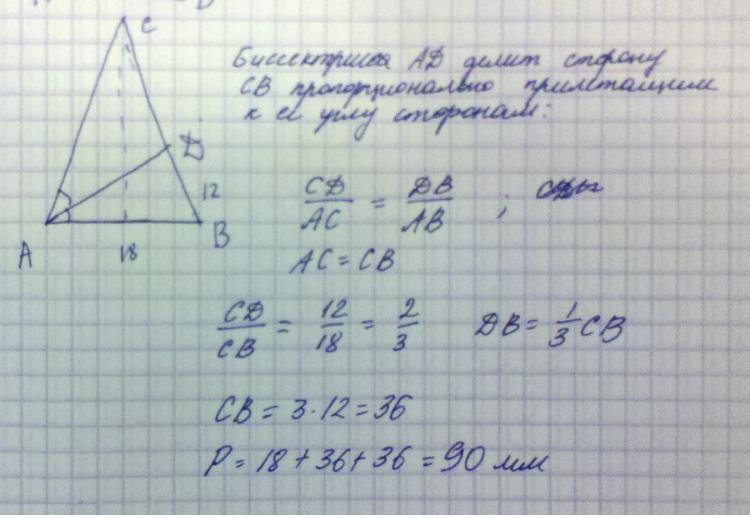 C
Биссектриса AD делит сторону
CB пропорционально прилежащим
к ее углу сторонам:
D
12
A
18
B
CD/AC = DB/AB ;
AC = CB
CD/CB = 12/18 = 2/3 DB = 1/3 CB
CB = 3·12 = 36
P = 18 + 36 + 36 = 90 мм